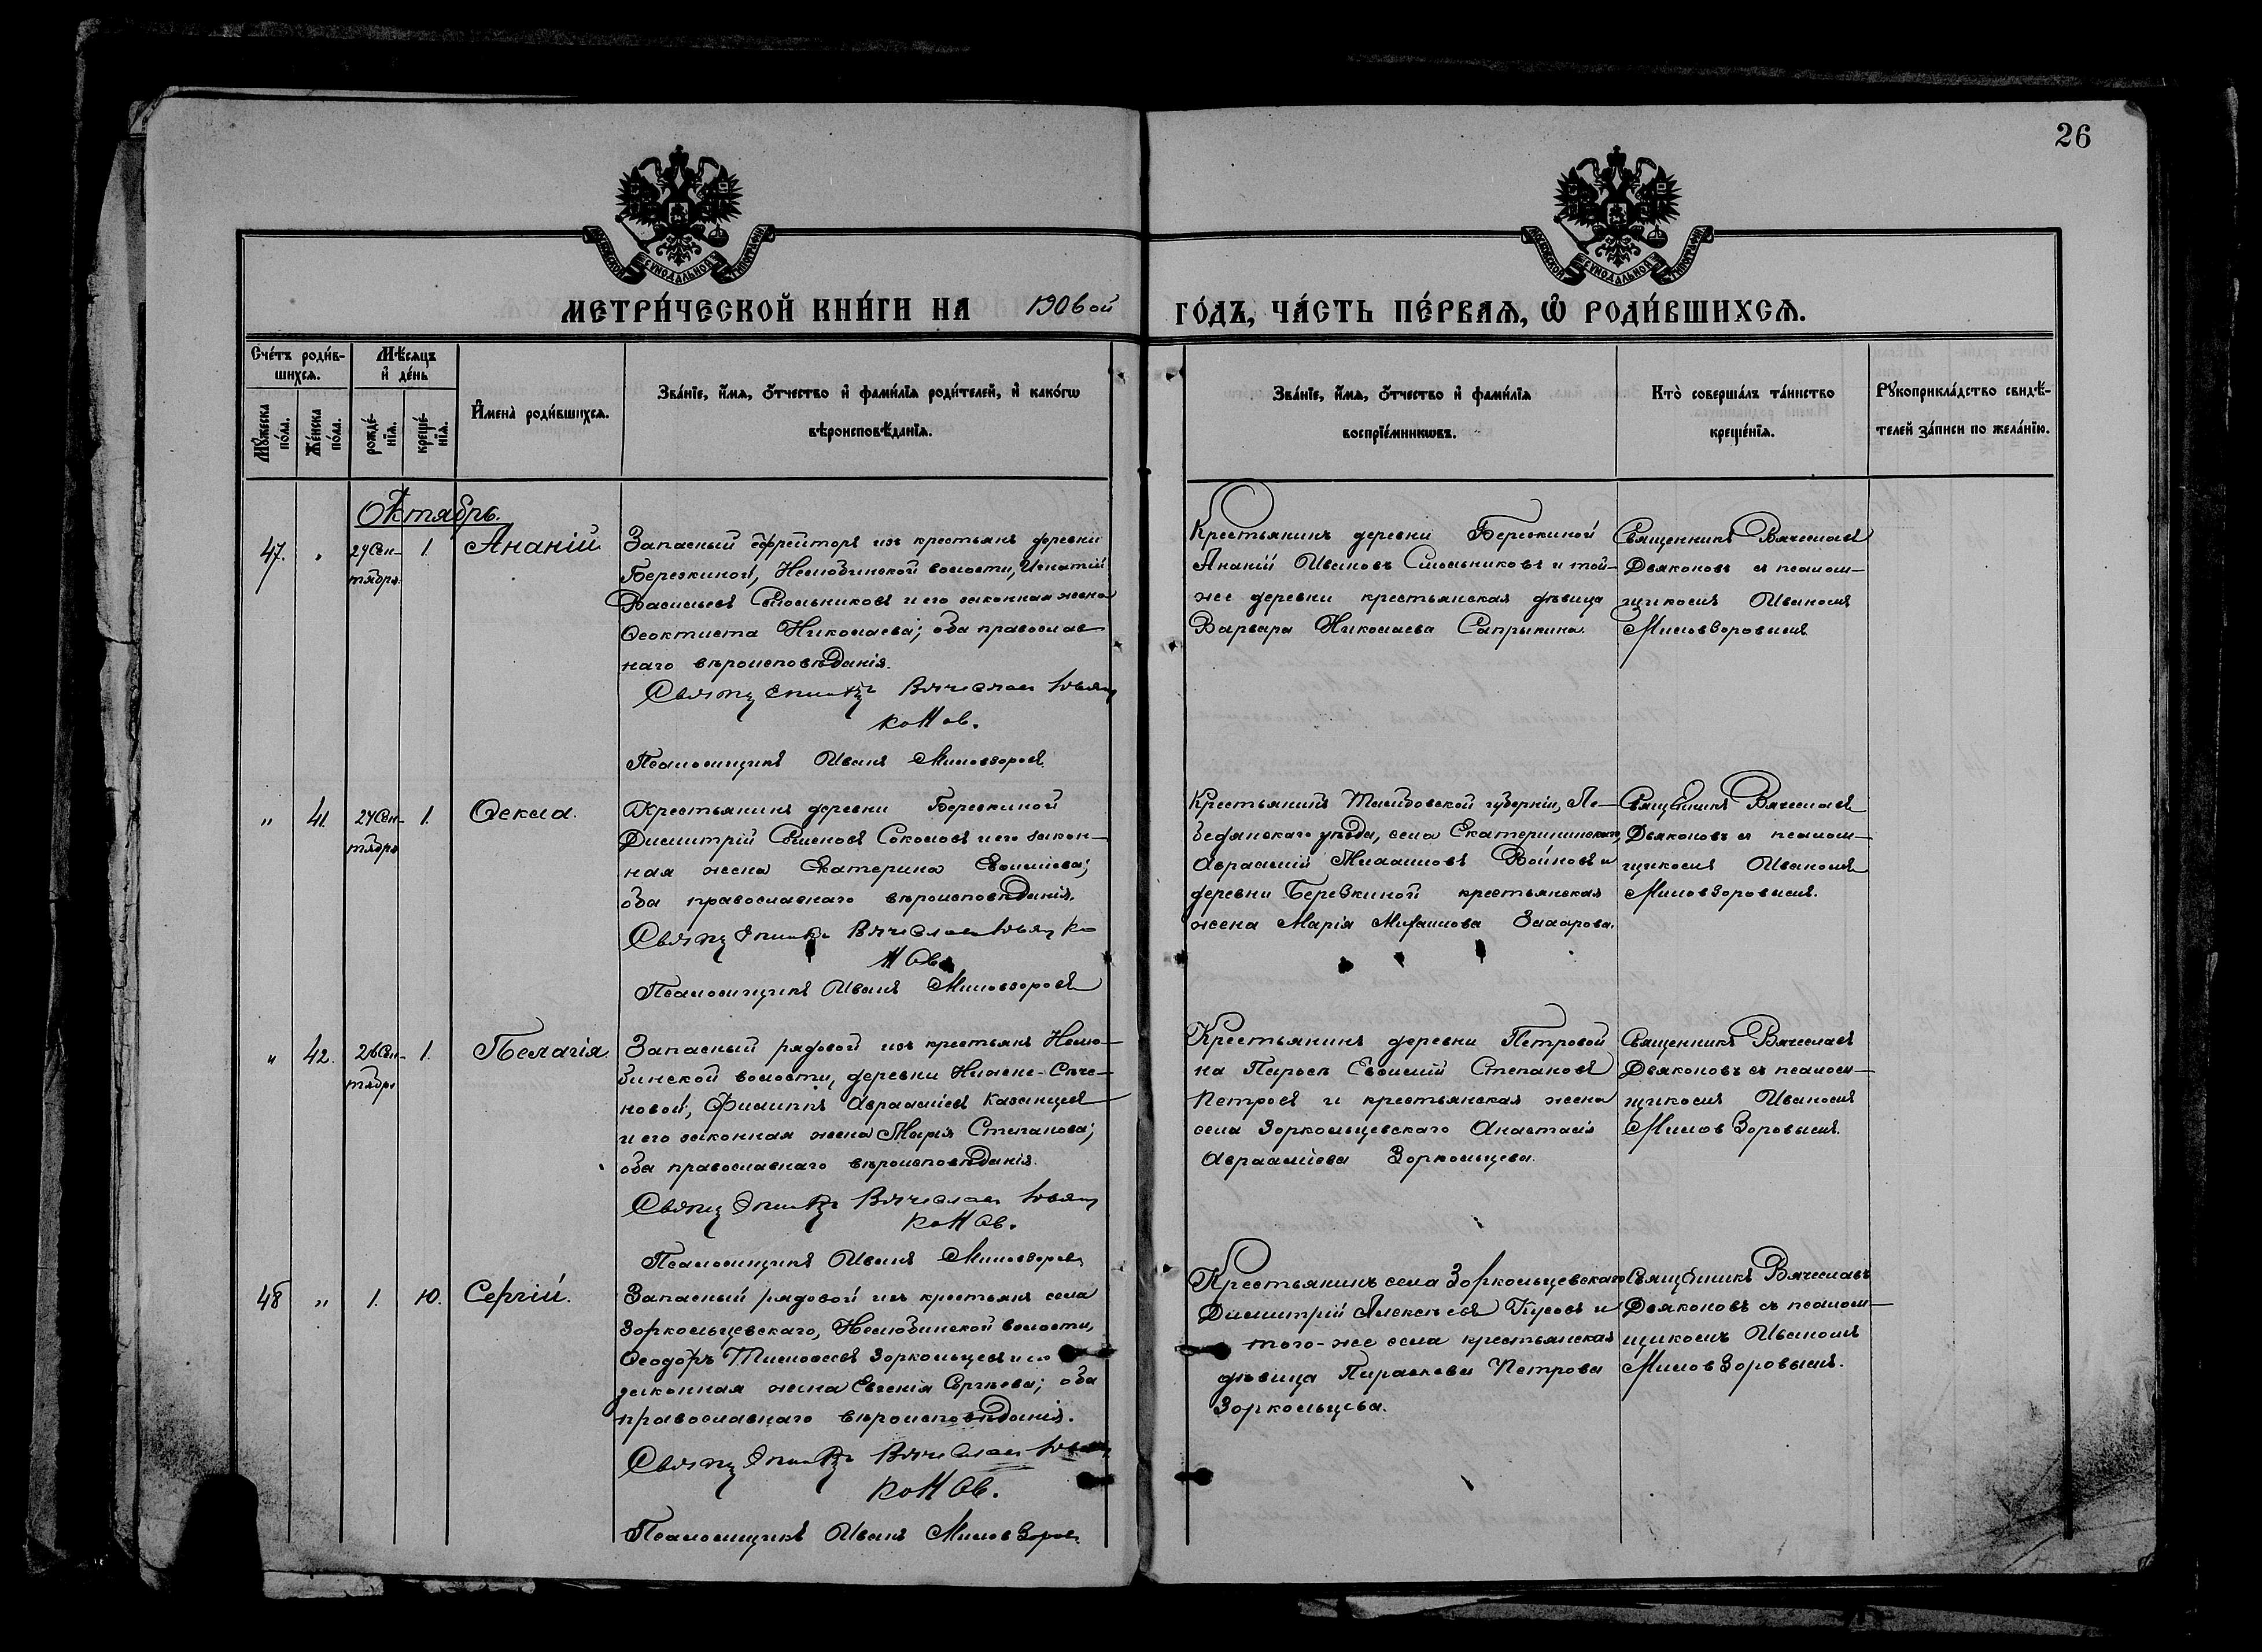 26
МОСКОВСКОЙ СѴНОДАЛЬНОЙ ТИПОГРАФІИ
МОСКОВСКОЙ СѴНОДАЛЬНОЙ ТИПОГРАФІИ
МЕТРИ́ЧЕСКОЙ КНИ́ГИ НА 1906ой ГО́ДЪ, ЧА́СТЬ ПЕ́РВАЯ, Ѡ҆ РОДИ́ВШИХСЯ.
Сче́тъ роди́в-
шихся.
Мѣ́сяцъ
и҆ де́нь
Мꙋ́жеска
по́ла.
Же́нска
по́ла.
рожде́-
нїя.
креще́-
нїя.
И҆мена̀ роди́вшихся.
Зва́нїе, и҆́мя, ѻ҆́тчество и҆ фами́лїя роди́телей, и҆ како́гѡ
вѣроисповѣ́данїя.
Зва́нїе, и҆́мя, ѻ҆́тчество и҆ фами́лїя
воспрїе́мникѡвъ.
Кто̀ соверша́лъ та́инство
креще́нїя.
Рꙋкоприкла́дство свидѣ́-
телей за́писи по жела́нїю.
Октябрь.
47. " 24 Сен-
тября. 1. Ананій.
Запасный ефрейторъ изъ крестьянъ деревни
Березкиной, Нелюбинской волости, Игнатій
Васильевъ Смольниковъ и его законная жена
Ѳеоктиста Николаева; оба православ
наго вѣроисповѣданія.
Вячеслав Дьяконов.
Псаломщикъ Иванъ Миловзоровъ
Крестьянинъ деревни Березкиной
Ананій Ивановъ Смольниковъ и той-
же деревни крестьянская дѣвица
Варвара Николаева Сапрыкина.
Священникъ Вячеславъ
Дьяконовъ съ псалом-
щикомъ Иваномъ
Миловзоровымъ.
" 41. 24 Сен-
тября 1. Ѳекла.
Крестьянинъ деревни Березкиной
Димитрій Семеновъ Соколовъ и его закон-
ная жена Екатерина Евѳиміева;
оба православнаго вѣроисповѣданія.
Вячеслав Дьяко
нов
Псаломщикъ Иванъ Миловзоровъ
Крестьянинъ Тамбовской губерніи, Ле-
бедянскаго уѣзда, села Екатерининскаго,
Авраамій Михаиловъ Войновъ и
деревни Березкиной крестьянская
жена Марія Михаилова Захарова.
Священникъ Вячеславъ
Дьяконовъ съ псалом-
щикомъ Иваномъ
Миловзоровымъ.
" 42. 26 Сен-
тября 1. Пелагія.
Запасный рядовой изъ крестьянъ Нелю-
бинской волости, деревни Нижне-Сѣче-
новой, Филиппъ Аврааміевъ Казанцевъ
и его законная жена Марія Степанова;
оба православнаго вѣроисповѣданія.
Вячеслав Дья
конов.
Псаломщикъ Иванъ Миловзоровъ
Крестьянинъ деревни Петровой
на Пыросъ Евѳимій Степановъ
Петровъ и крестьянская жена
села Зоркольцевскаго Анастасія
Авраамiева Зоркольцева.
Священникъ Вячеславъ
Дьяконовъ съ псалом-
щикомъ Иваномъ
Миловзоровымъ.
48 " 1. 10. Сергій.
Запасный рядовой изъ крестьянъ села
Зоркольцевскаго, Нелюбинской волости,
Ѳеодоръ Тимоѳеевъ Зоркольцевъ и его
законная жена Евгенія Сергѣева; оба
православнаго вѣроисповѣданія.
Вячеслав Дья
конов.
Псаломщикъ Иванъ Миловзоровъ
Крестьянинъ села Зоркольцевскаго
Димитрій Алексѣевъ Кусовъ и
того-же села крестьянская
дѣвица Параскева Петрова
Зоркольцева.
Священникъ Вячеславъ
Дьяконовъ съ псалом-
щикомъ Иваномъ
Миловзоровымъ.